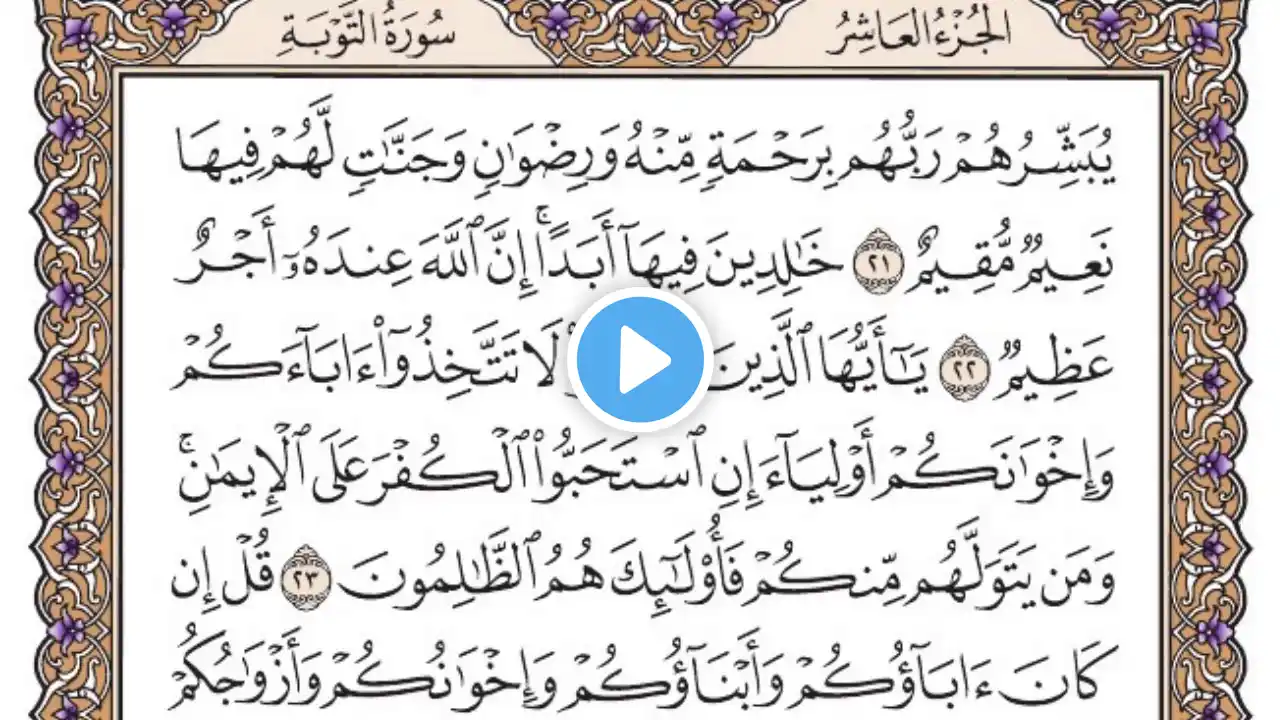 الجزء العاشر
سورة التوبة
يُبَشِّرُهُمْ رَبُّهُم بِرَحْمَةٍ مِّنْهُ وَرِضْوَٰنٍ وَجَنَّٰتٍ لَّهُمْ فِيهَا
نَعِيمٌ مُّقِيمٌ ٢١ خَٰلِدِينَ فِيهَآ أَبَدًا ۚ إِنَّ ٱللَّهَ عِندَهُۥٓ أَجْرٌ
عَظِيمٌ ٢٢ يَٰٓأَيُّهَا ٱلَّذِينَ لَا تَتَّخِذُوٓا۟ ءَابَآءَكُمْ
وَإِخْوَٰنَكُمْ أَوْلِيَآءَ إِنِ ٱسْتَحَبُّوا۟ ٱلْكُفْرَ عَلَى ٱلْإِيمَٰنِ ۚ
وَمَن يَتَوَلَّهُم مِّنكُمْ فَأُو۟لَٰٓئِكَ هُمُ ٱلظَّٰلِمُونَ ٢٣ قُلْ إِن
كَانَ ءَابَآؤُكُمْ وَأَبْنَآؤُكُمْ وَإِخْوَٰنُكُمْ وَأَزْوَٰجُكُمْ